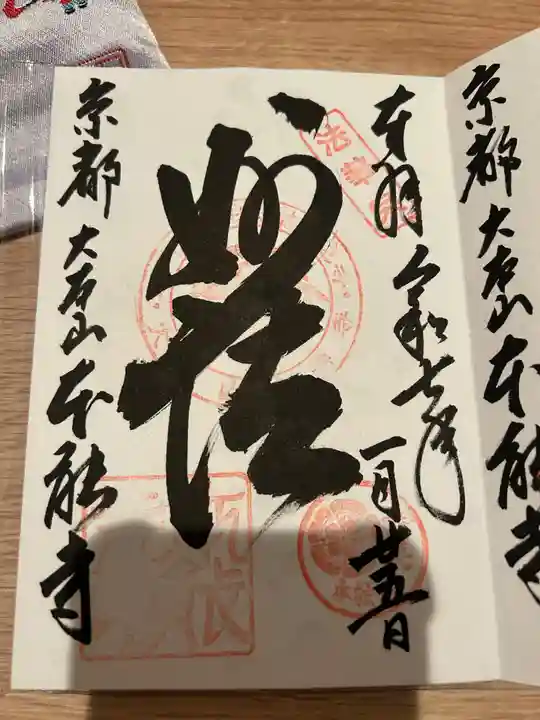 京都 大本山 本能寺
奉拝 令和七年 一月廿五日
妙法
京都 大本山 本能寺